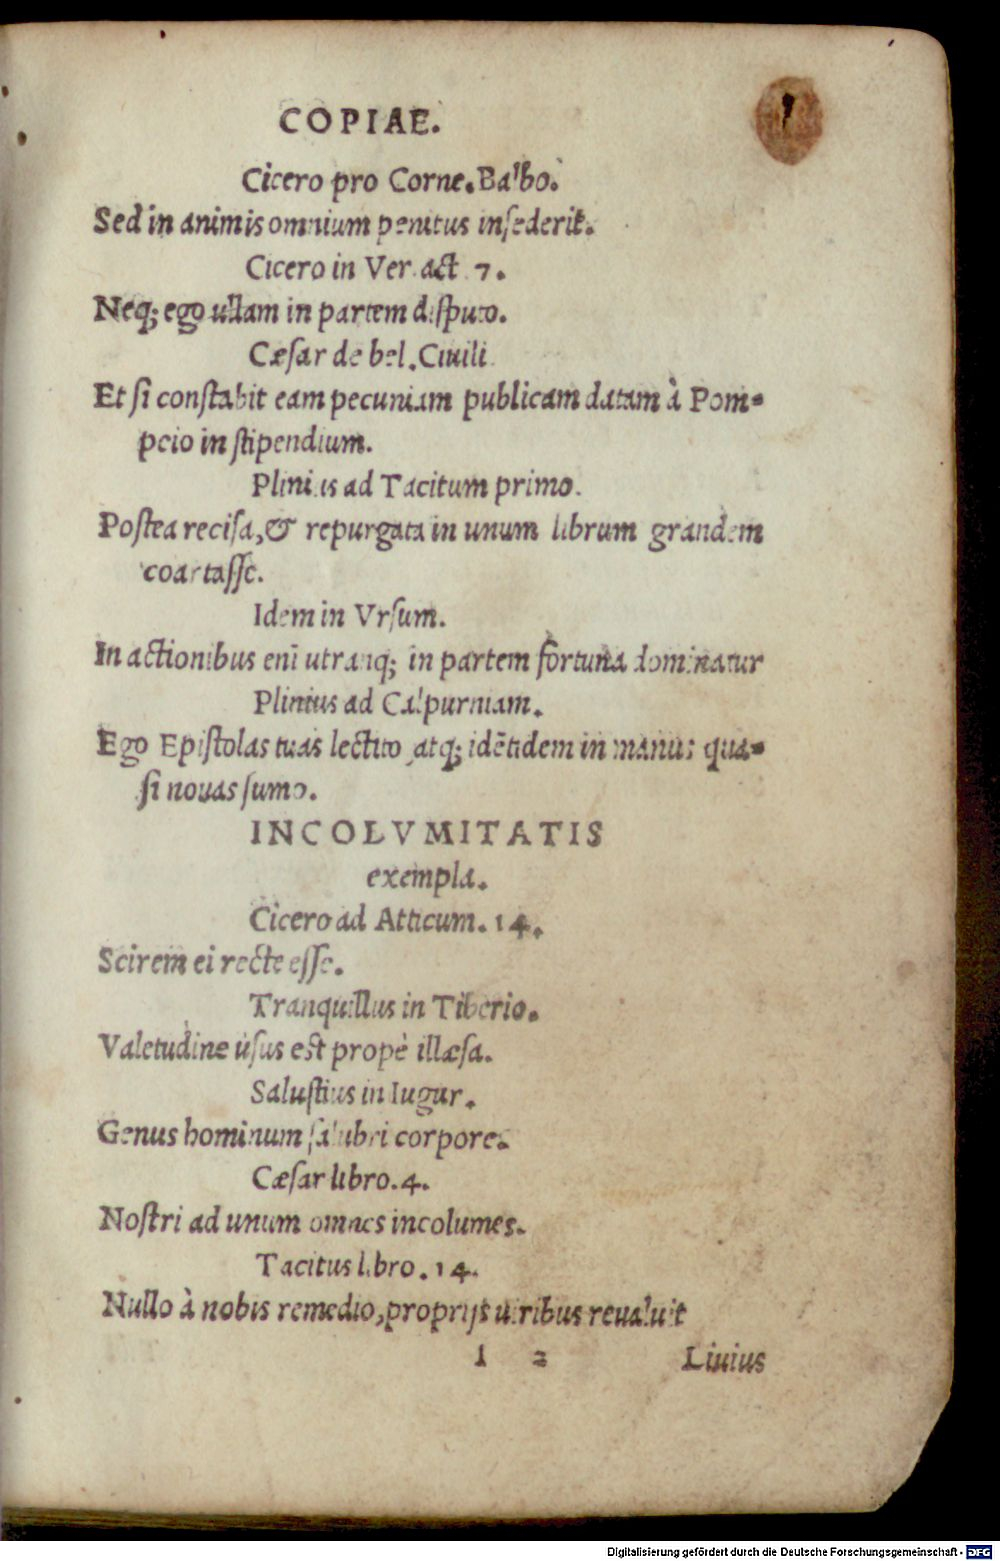 COPIAE.
Cicero pro Corne. Balbo.
Sed in animis omnium penitus inſederit.
Cicero in Ver. act 7.
Neq; ego ullam in partem diſputo.
Cæſar de bel. Ciuili
Et ſi conſtabit eam pecuniam publicam datam à Pom-
peio in ſtipendium.
Plinius ad Tacitum primo.
Poſtea reciſa, & repurgata in unum librum grandem
coartaſſe.
Idem in Vrſum.
In actionibus enī utranq; in partem fortuna dominatur
Plinius ad Calpurniam.
Ego Epiſtolas tuas lectito atq; idētidem in manus qua-
ſi nouas ſumo.
INCOLVMITATIS
exempla.
Cicero ad Atticum. 14.
Scirem ei recte eſſe.
Tranquillus in Tiberio.
Valetudine uſus est propè illæſa.
Saluſtius in Iugur.
Genus hominum ſalubri corpore.
Cæſar libro. 4.
Noſtri ad unum omnes incolumes.
Tacitus libro. 14.
Nullo à nobis remedio, proprijs uiribus reualuit
l 2 Liuius
Digitalisierung gefördert durch die Deutsche Forschungsgemeinschaft - DFG